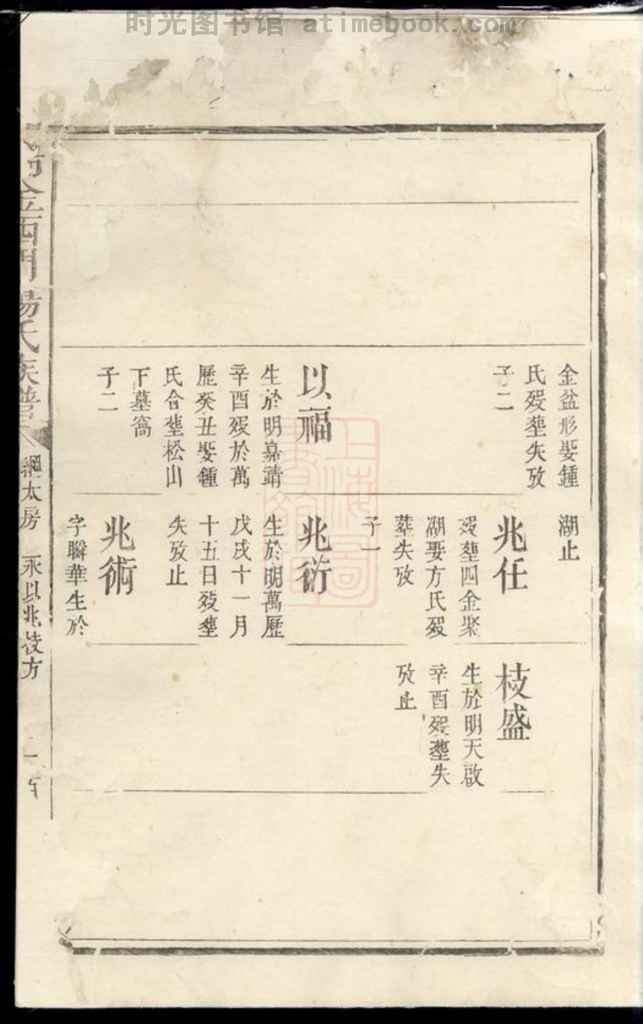 时光图书馆 atimebook.com
金盆形娶鍾
氏殁塟失攷
子二
以福
生於明嘉靖
辛酉殁於萬
歷癸丑娶鍾
氏合塟松山
下墓窩
子二
湖止
兆任
殁塟四金聚
湖娶方氏殁
葬失攷
子一
兆衍
生於明萬歷
戊戌十一月
十五日殁塟
失攷止
兆術
字聯華生於
枝盛
生於明天啟
辛酉殁塟失
攷止
金西門楊氏族譜
綱太房
永以兆枝方
上海圖書館